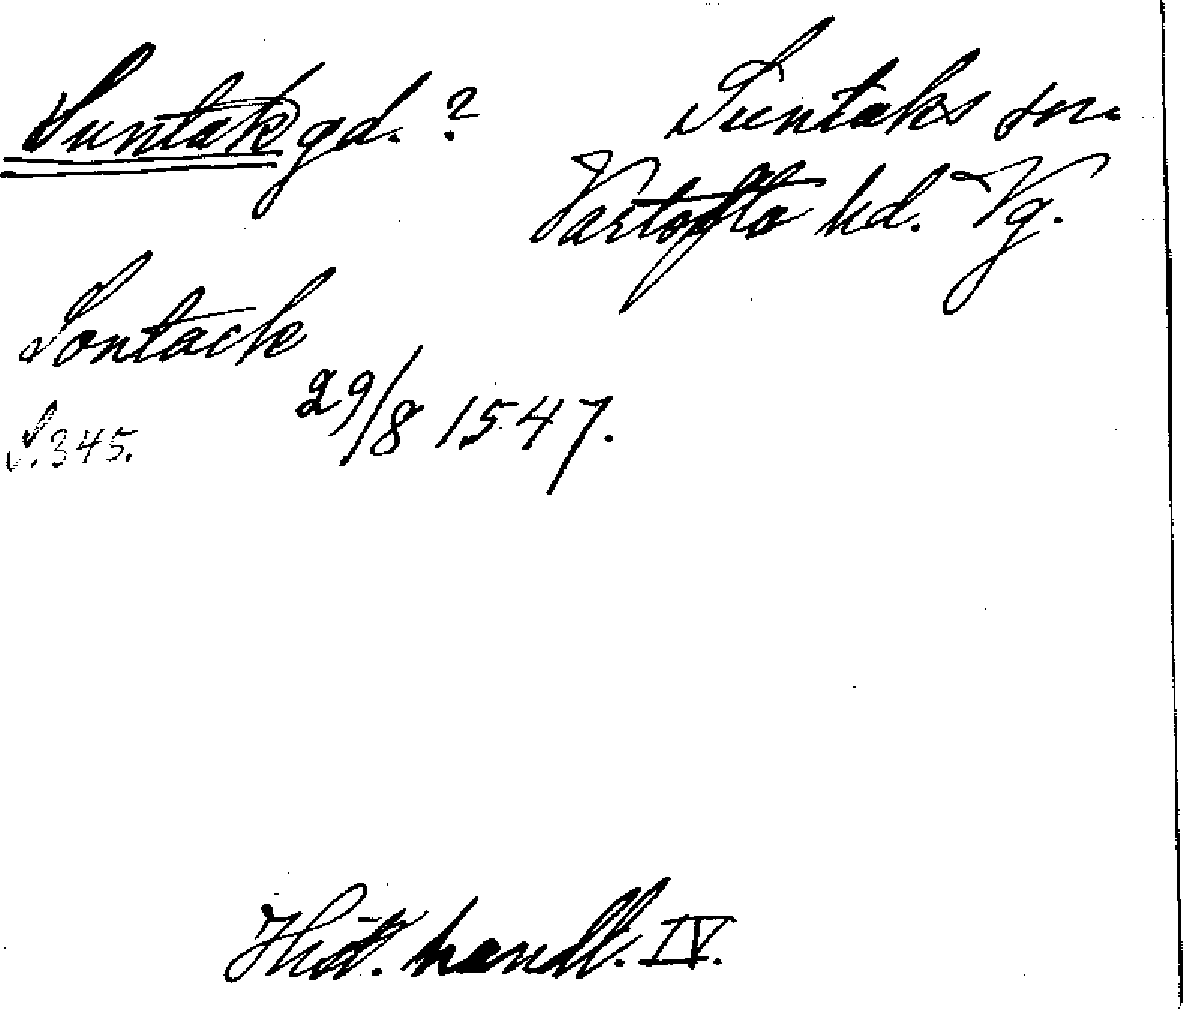 Suntak gd. ?
Suntaks sn.
Vartofta hd. Vg.
Sontack
29/8 1547.
S. 345.
Hist. handl. IV.